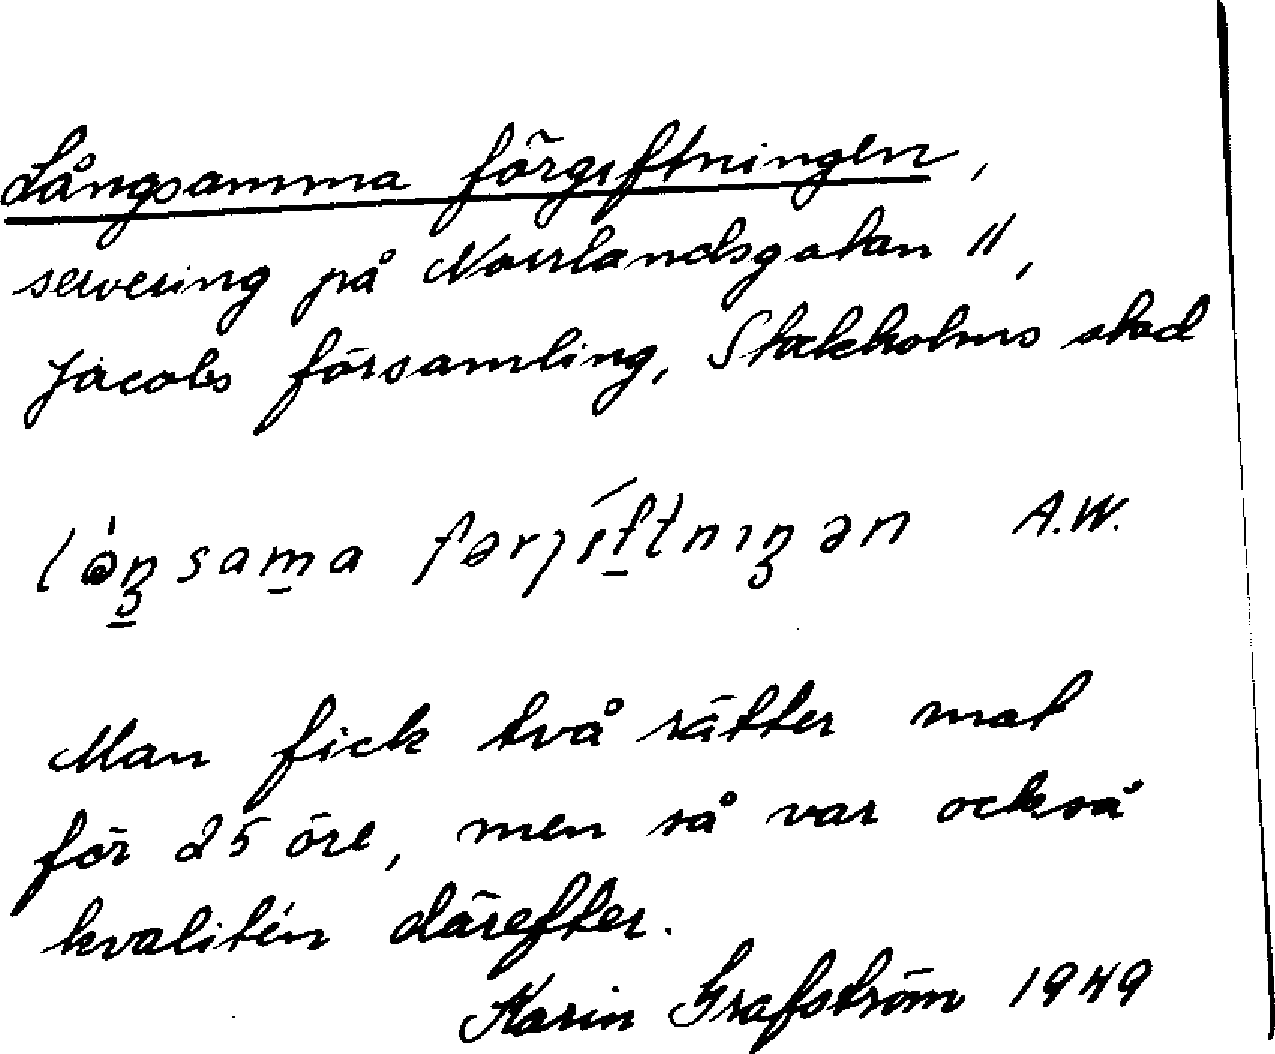 Långsamma förgiftningen,
servering på Norrlandsgatan 11,
Jacobs församling, Stockholms stad
A.W.
Man fick två rätter mat
för 25 öre, men så var också
kvalitén därefter.
Karin Grafström 1949